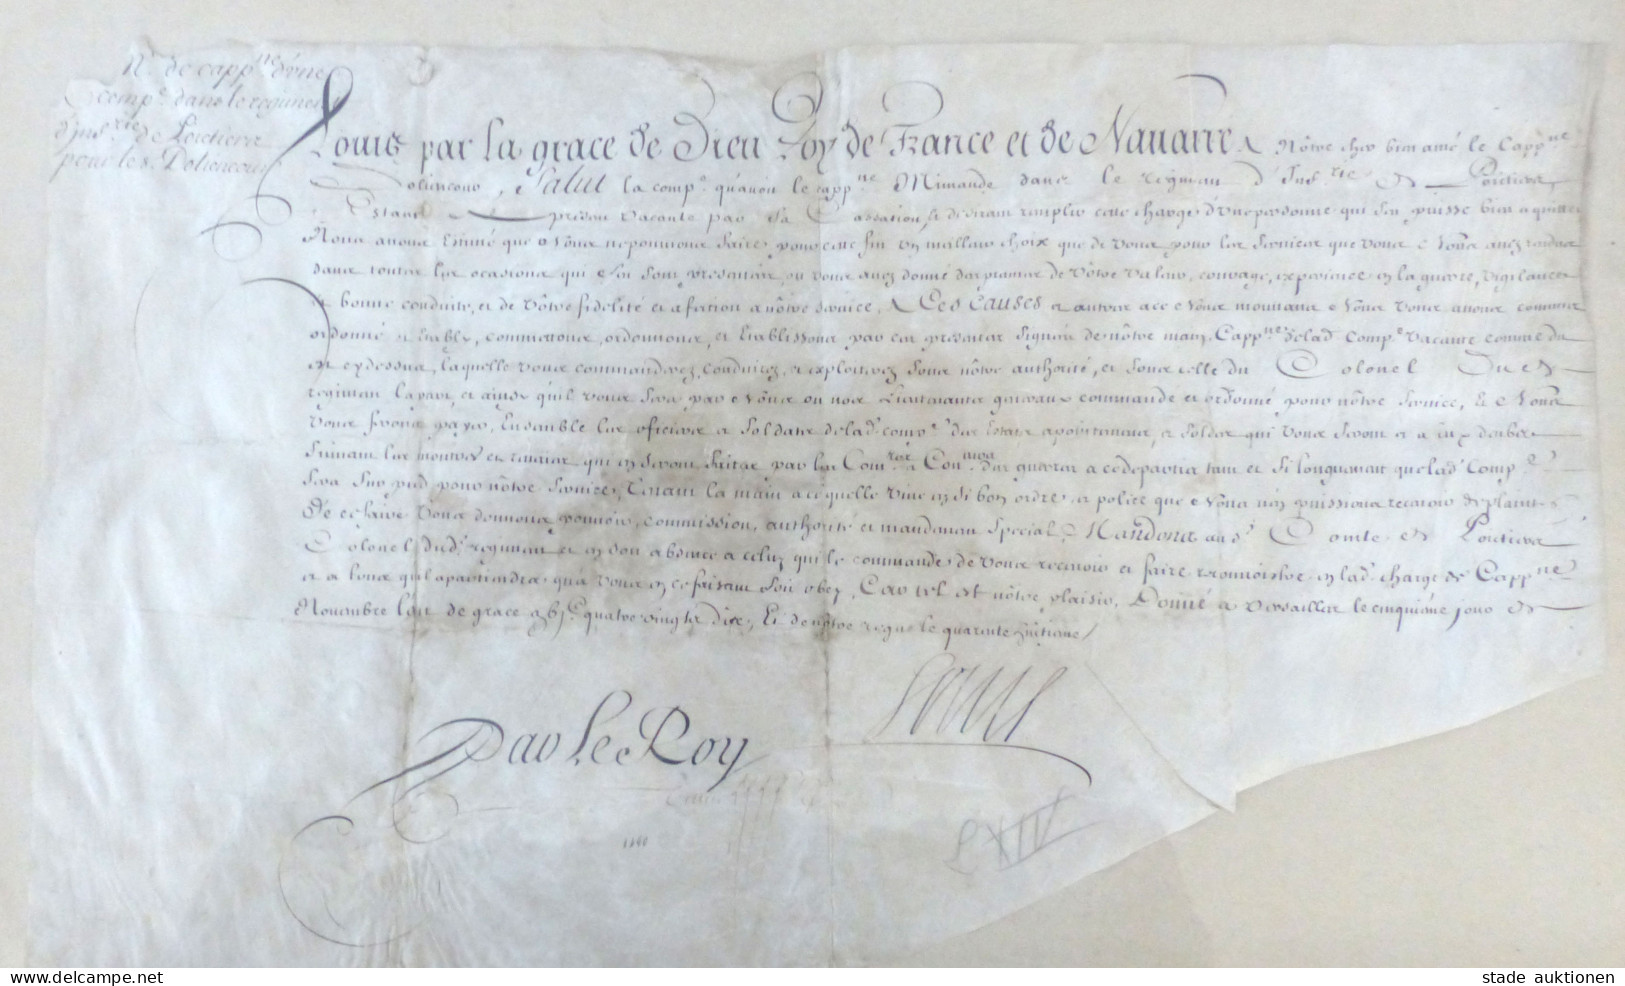 Nr. de cappne d'une
compe. dans le regiment
d'infrie de Poictiers
pour le s. Doliencourt
Louis par la grace de Dieu Roy de France et de Nauarre, A Nôtre cher bien amé le Cappne
Doliencour, Salut la compe. qu'auoit le cappne Mimande dans le regiment d'Infrie de Poictiers
Estant a present vacante par Sa Cassation, et desirant remplir cette charge d'une personne qui s'en puisse bien aquitter
Nous auons Estimé que Nous ne pouuions faire pour cette fin un meilleur choix que de vous pour les seruices que vous Nous auez rendus
dans toutes les ocasions qui s'en sont presentées, ou vous auez donné des preuues de vôtre valeur, courage, experience en la guerre, vigilance
et bonne conduite, et de vôtre fidelité et afection a nôtre seruice, A Ces Causes et autres a ce Nous mouuans Nous vous auons commis
ordonné et Etably, commettons, ordonnons, et Etablissons par ces presentes signées de nôtre main, Cappne de lad. Compe. vacante comme dit
est cy dessus, laquelle vous commanderez, conduirez, et exploiterez sous nôtre authorité, et sous celle du Colonel Dud.
regiment la part, et ainsy qu'il vous sera par Nous ou nos Lieutenans generaux commandé et ordonné pour nôtre seruice, Et Nous
vous ferons payer, Ensemble les oficiers et soldats de lad. compe. des Estats apointemens, et soldes qui vous seront et a eux deubs
suiuant les monstres et reueües qui en seront faites par les Comres et Con des guerres a ce departis tant et si longuement que lad. Compe.
sera sur pied pour nôtre seruice, Tenant la main a ce quelle viue en si bon ordre, et police que Nous n'en puissions receuoir de plaintes
De ce faire vous donnons pouuoir, commission, authorité et mandement special, Mandons aud. Comte de Poictiers
Colonel dud. regiment et en son absence a celuy qui le commande de vous receuoir et faire reconnoistre en lad. charge de Cappne
et a tous qu'il apartiendra qu'a vous en ce faisant soit obey, Car tel est nôtre plaisir, Donné a Versailles le cinquiéme jour de
Nouembre l'an de grace gbje. quatre vingts dix, Et de nôtre regne le quarante huitiéme
Louis
Par Le Roy
LXIV
delcampe.net
stade auktionen